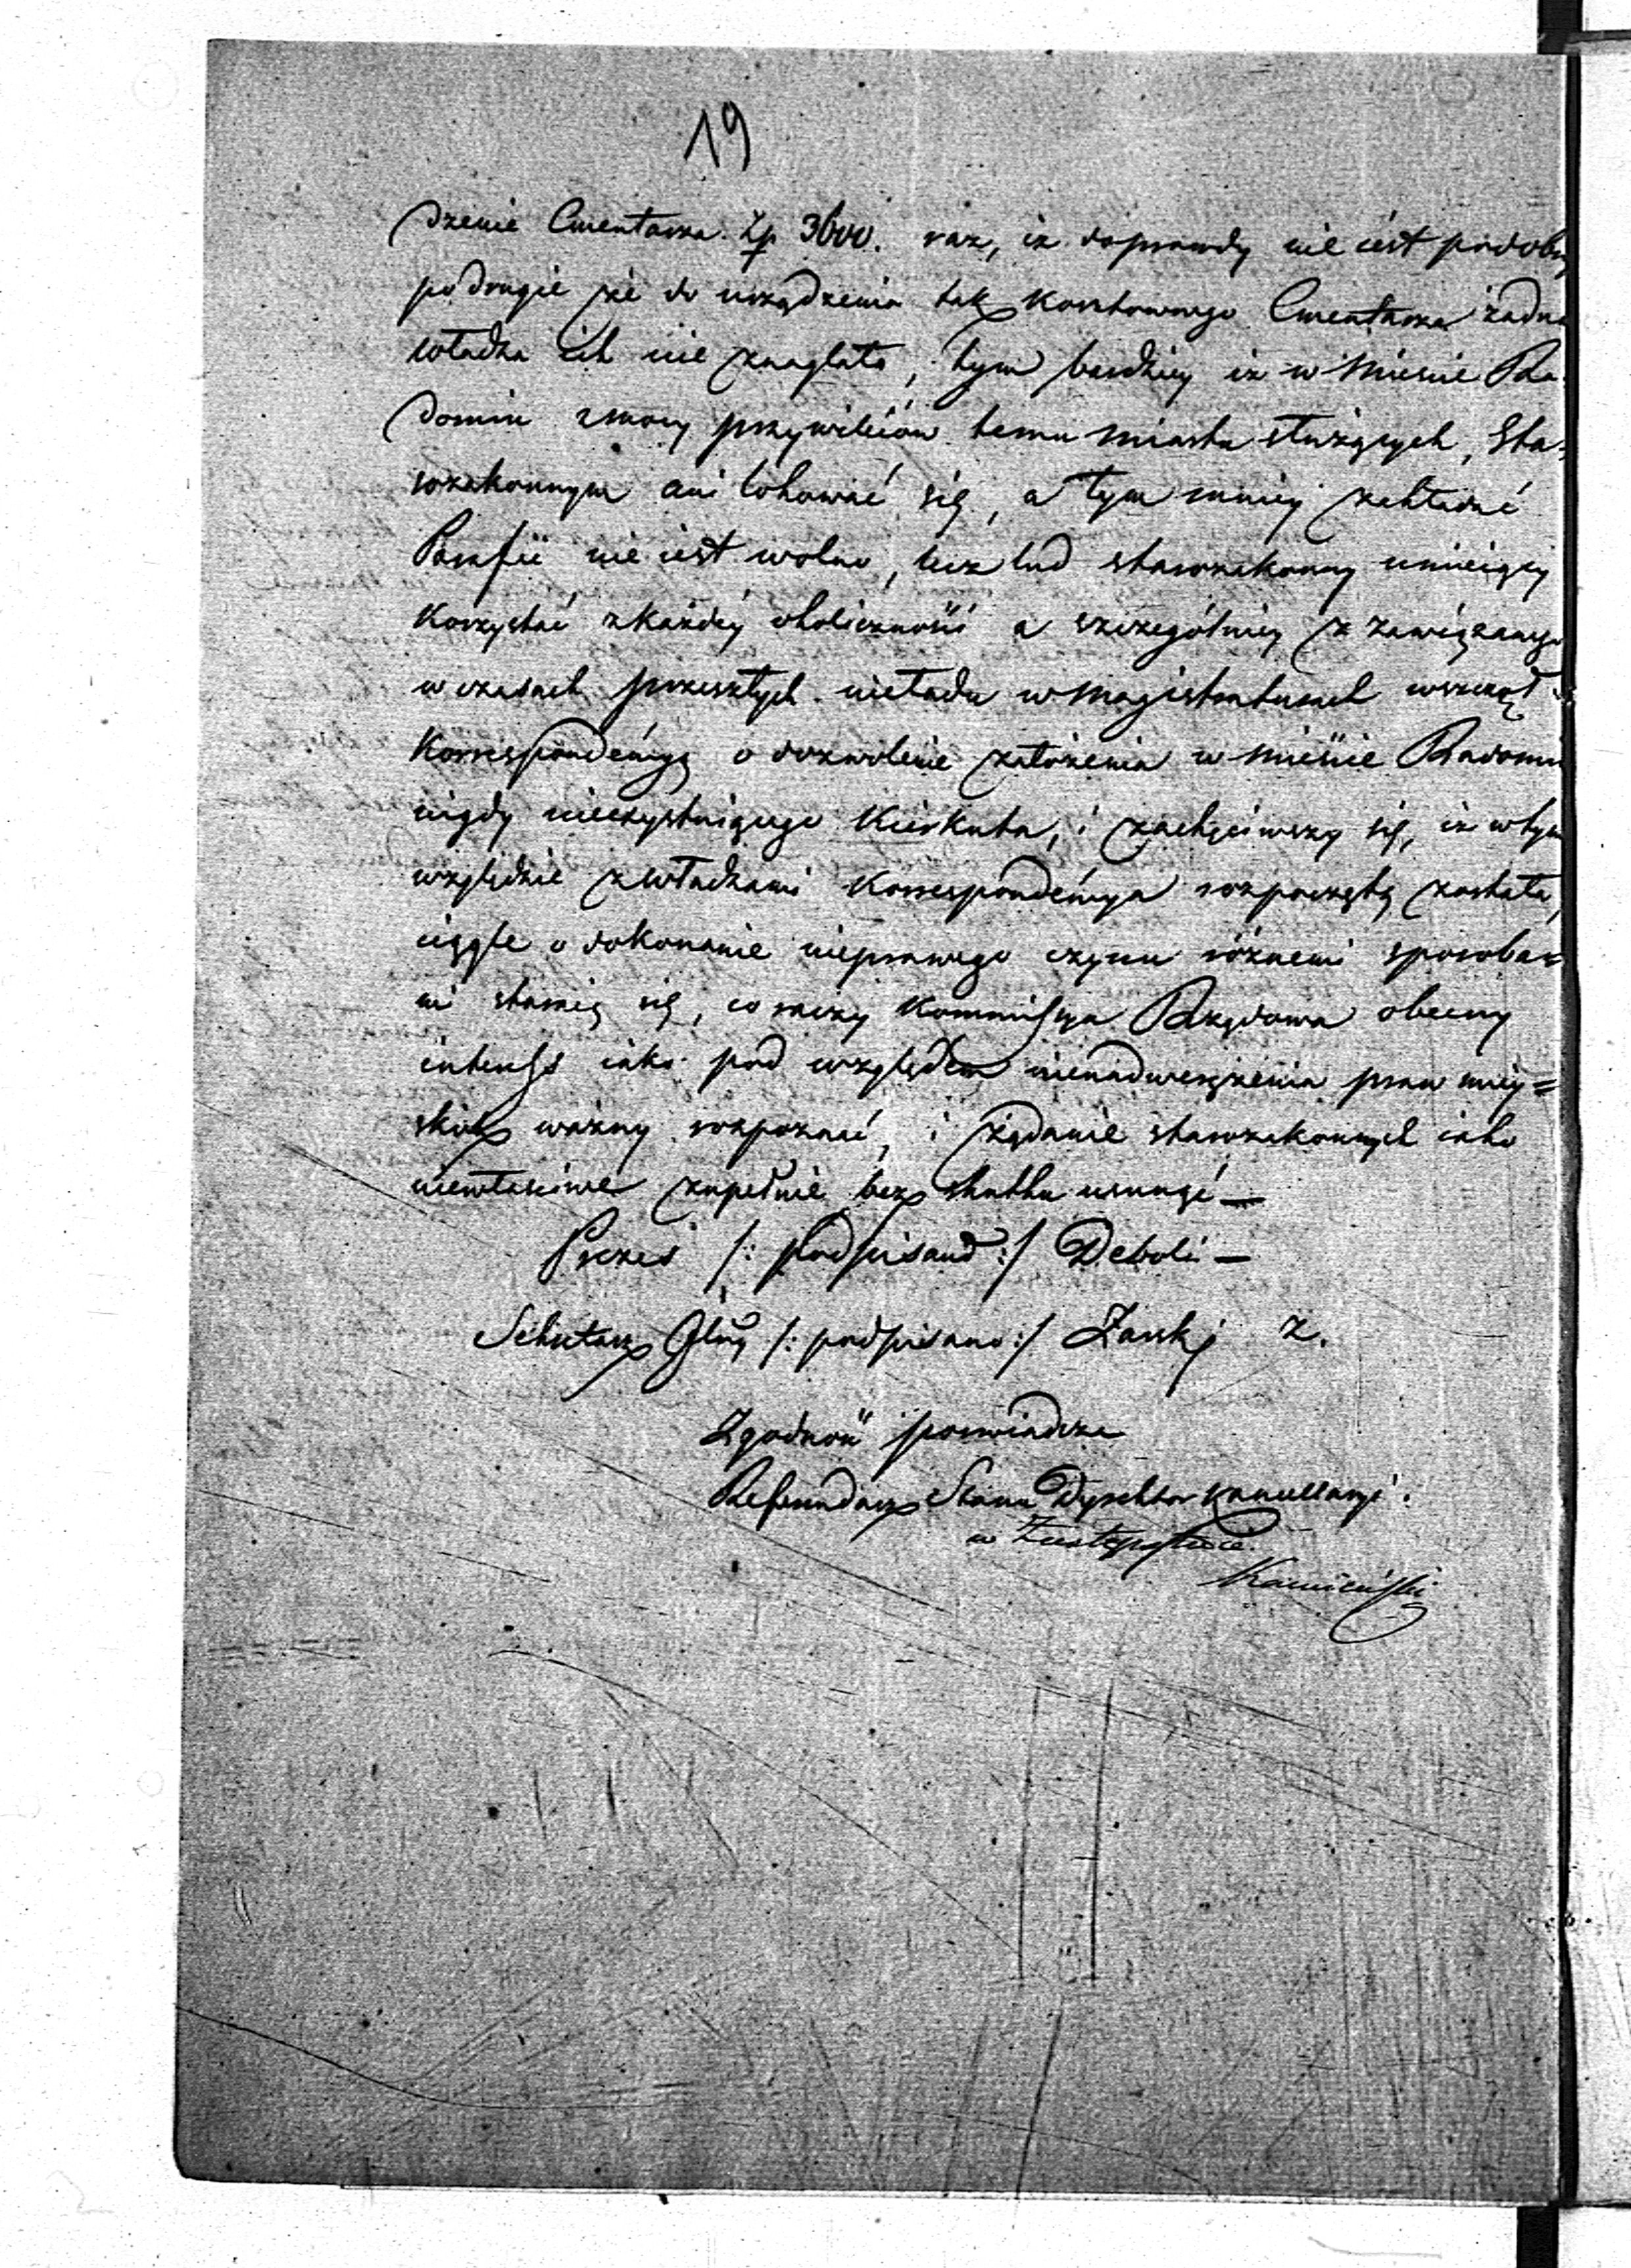 19
dzenie Cmentarza Zł. 3600. raz, iż doprawdy nie iest podobn
po drugie że do urządzenia tak kosztownego Cmentarza żadna
władza ich nie znaglała, tym bardziey iż w Mieście Ra-
domiu z mocy przywileiów temu miastu służących, Sta-
rozakonnym ani lokować się, a tym mniey zakładać
Parafii nie iest wolno, lecz lud starozakonny umieiący
korzystać z każdéy okoliczności a szczególniey z zawiązanego
w czasach przeszłych nieładu w Magistraturach wszczął
Korrespondéncyą o dozwolenie założenia w Mieście Radomiu
nigdy nieexystuiącego Kirkuta, i zachęciwszy się, iż w tym
względzie z władzami Korrespondéncya rozpoczętą została,
ciągle o dokonanie nieprawego czynu róznemi sposoba=
mi starają się, co raczy Kommissya Rządowa obecny
interess iako pod względem nienadwerężenia praw miey=
skich ważny rozpoznać, i żądanie starozakonnych iako
niewłaściwe zupełnie bez skutku usunąć —
Prezes /: podpisano :/ Deboli —
Sekretarz Głny /: podpisano :/ Zarski Z.
Zgodność poswiadcza
Referendarz Stanu Dyrektor Kancellaryi.
w Zastępstwie.
Kamieński